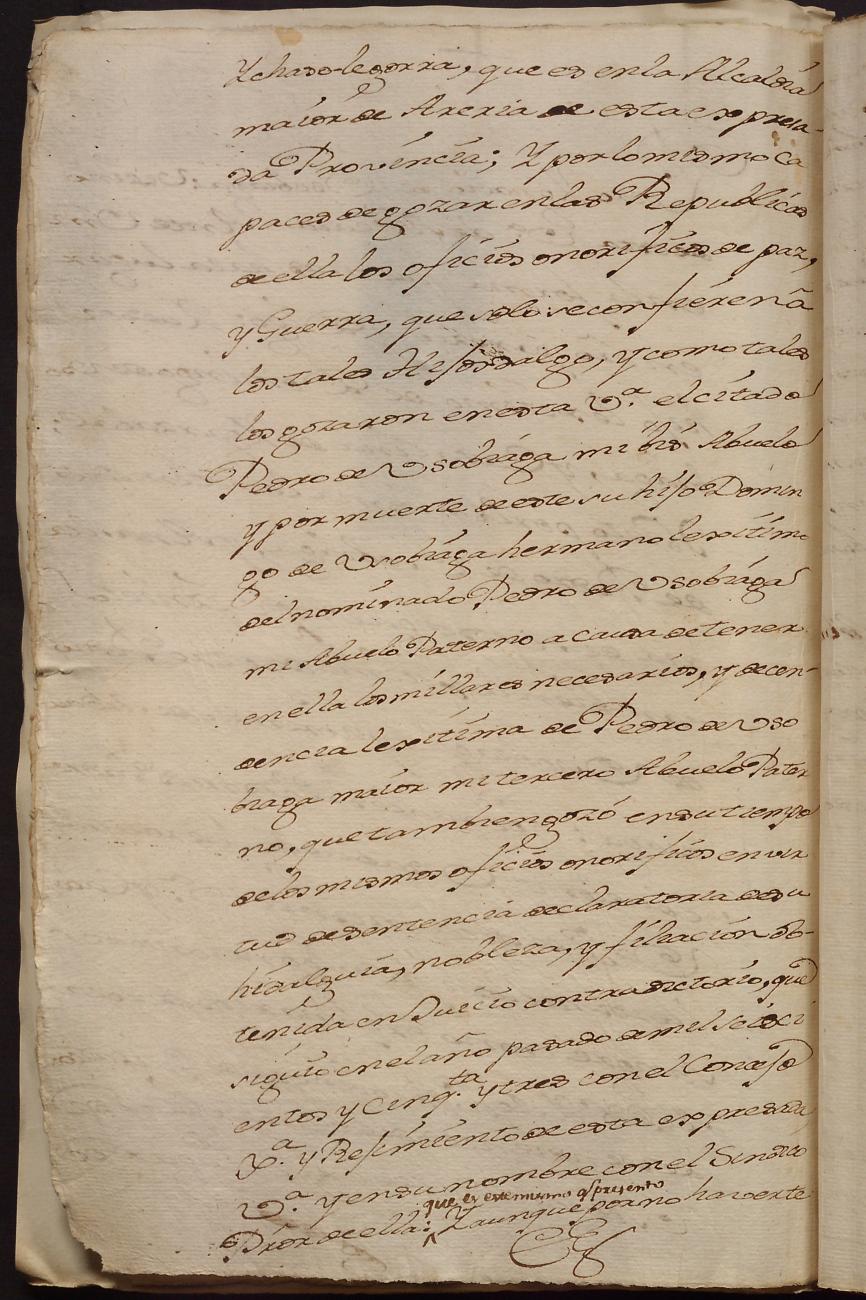 Ychaso-legorra, que es en la Alcaldia
maior de Areria de esta expresa-
da Provincia; Y por lo mismo ca
paces de gozar en las Republicas
de ella los oficios onorificos de paz,
y Guerra, que solo se confieren â
los tales Hijosdalgo, y como tales
los gozaron en esta V.ª el citado
Pedro de Usobiaga mi bis Abuelo
y por muerte de este su hijo Domin
go de Usobiaga hermano lexitimo
del nominado Pedro de Usobiaga
mi Abuelo Paterno a causa de tener
en ella los millares necesarios, y decen-
dencia lexitima de Pedro de Uso
biaga maior mi tercero Abuelo Pater
no, que tambien gozó en su tiempo
de los mismos oficios onorificos en vir
tud de sentencia declaratoria de su
hidalguia, nobleza, y filiación ob-
tenida en Juicio contradictorio, que
siguio en el año pasado de mil seisci
entos y cinq.ta y tres con el Concejo
X.ª y Rejimiento de esta expresada
V.ª y en su nombre con el Sindico
que es este mismo q presento
Pror de ella: Y aunque por no haverte